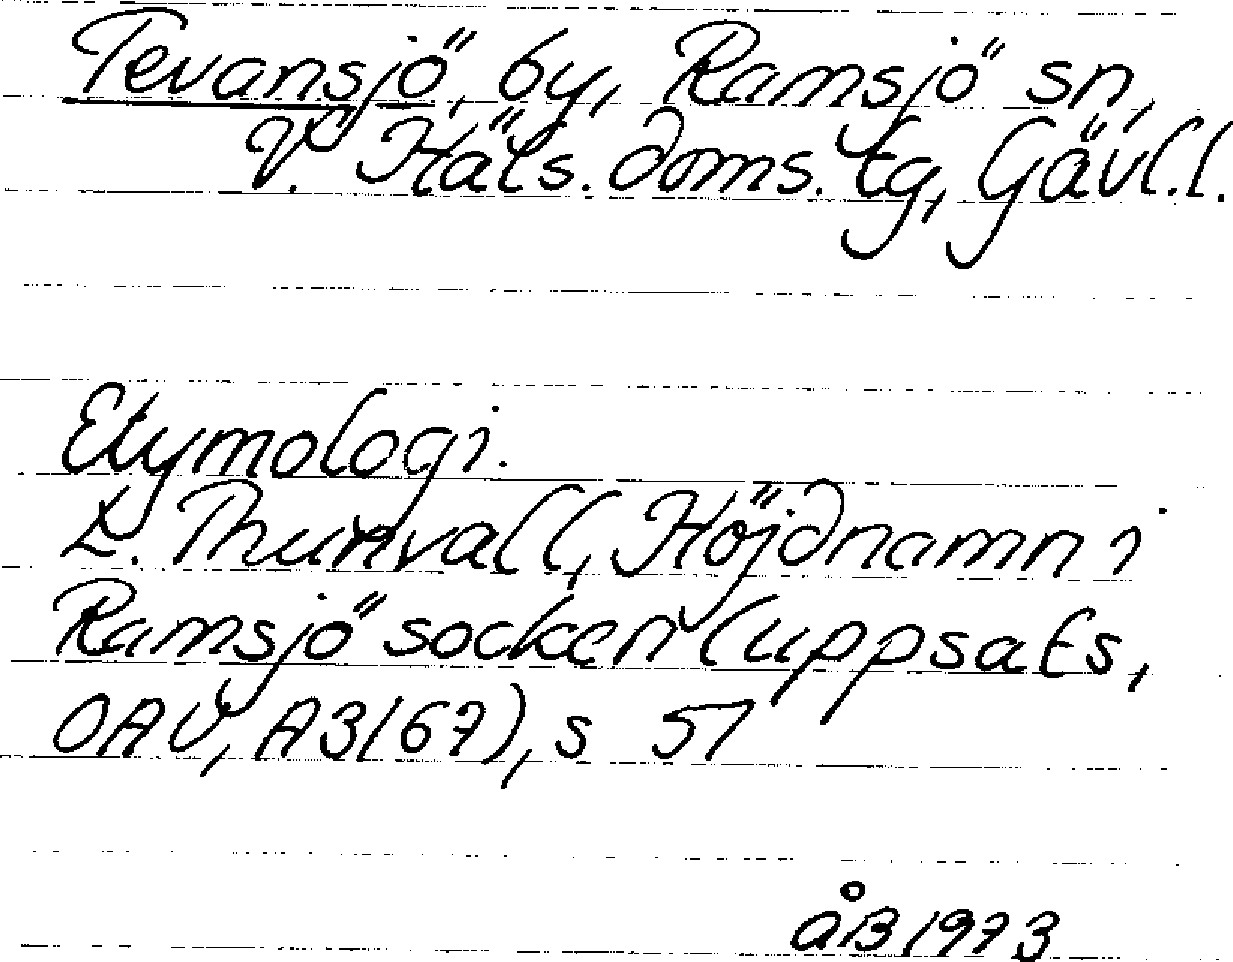 Tevansjö, by, Ramsjö sn,
V. Häls. doms. tg, Gävl.l.
Etymologi.
L. Thunvall, Höjdnamn i
Ramsjö socken (uppsats,
OAU, A3/67), s 51
åB 1973